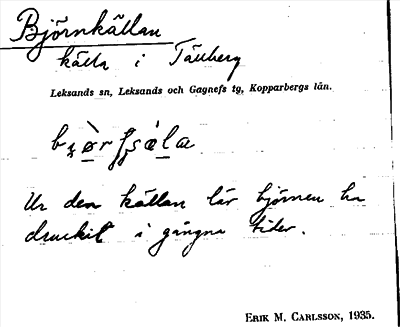 Björnkällan
källa i Tällberg
Leksands sn, Leksands och Gagnefs tg, Kopparbergs län.
Ur den källan lär björnen ha
druckit i gångna tider.
ERIK M. CARLSSON, 1935.